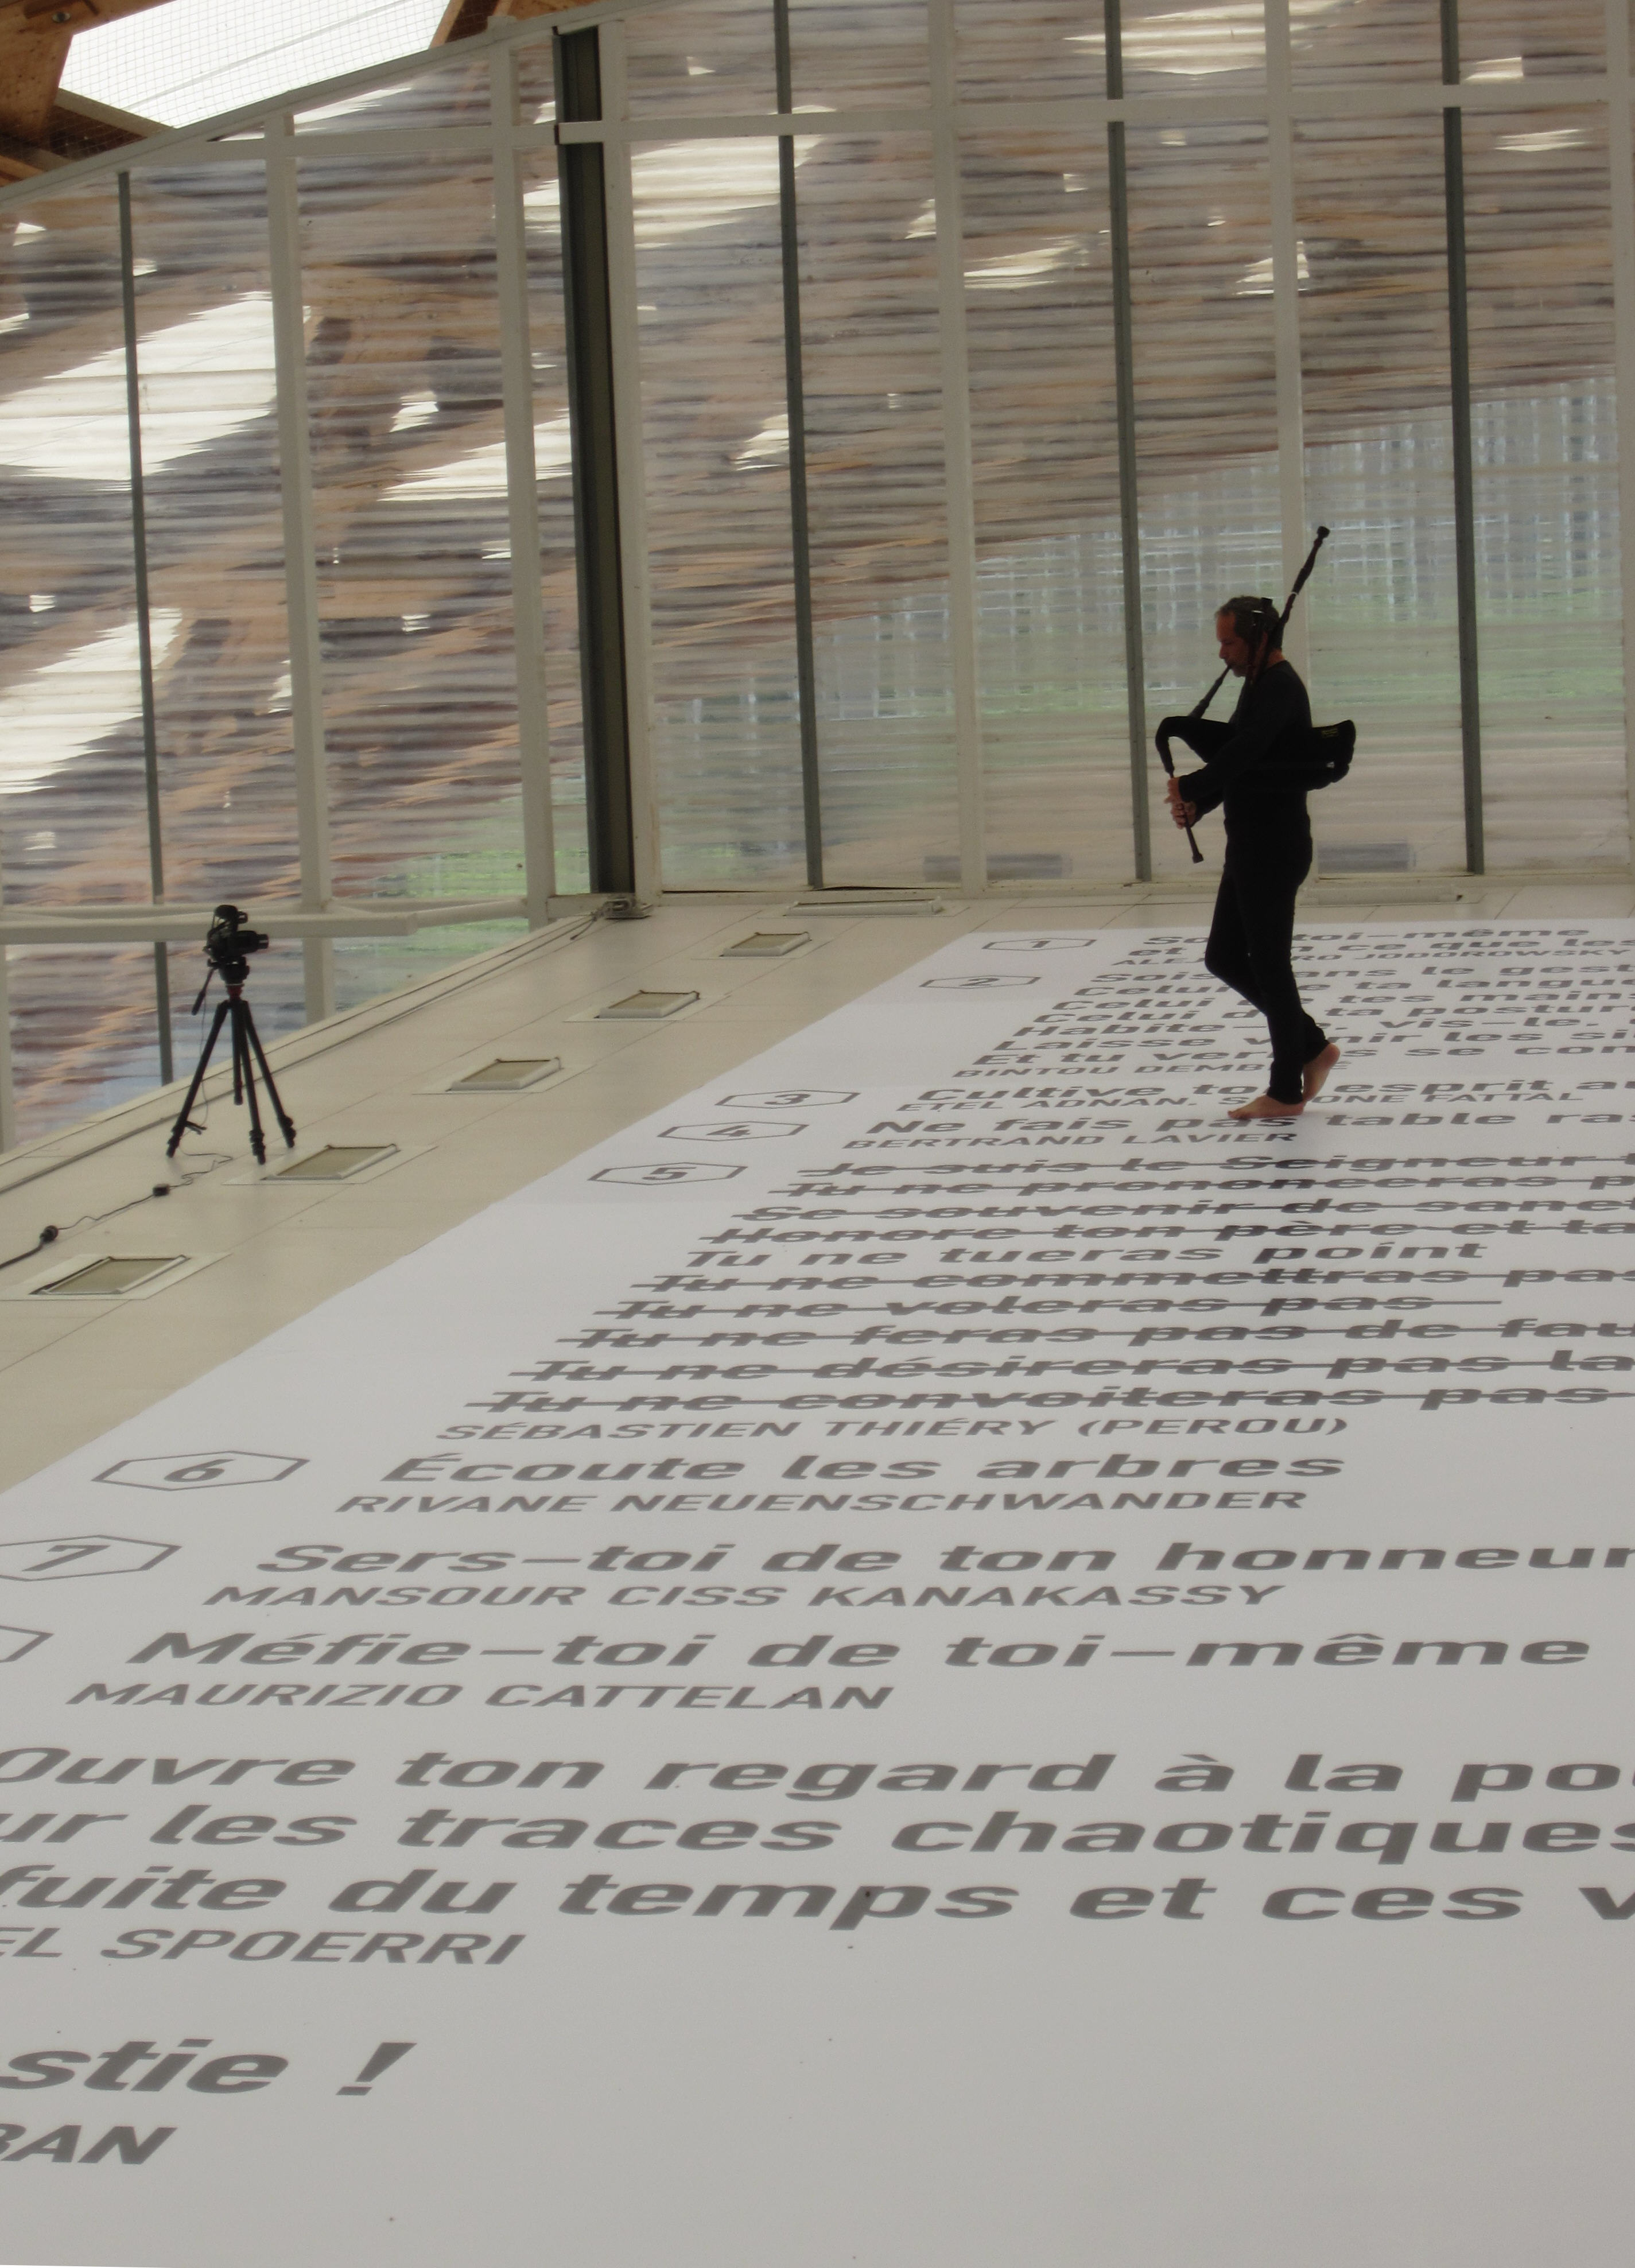 1 toi-même
et ce que les
RO JODOROWSKY
2 Sois dans le gest
ta langue
Celui tes mains
Celui ta postur
vis-le.
Laisse les
Et tu se con
BINTOU
3 Cultive esprit au
ETEL ADNAN, FATTAL
4 Ne fais pas table ras
BERTRAND LAVIER
5 Je suis le Seigneur
Tu ne prononceras p
Se souvenir de sanc
Honore ton père et ta
Tu ne tueras point
Tu ne commettras pas
Tu ne voleras pas
Tu ne feras pas de fau
Tu ne désireras pas la
Tu ne convoiteras pas
SÉBASTIEN THIÉRY (PEROU)
6 Écoute les arbres
RIVANE NEUENSCHWANDER
7 Sers-toi de ton honneur
MANSOUR CISS KANAKASSY
Méfie-toi de toi-même
MAURIZIO CATTELAN
Ouvre ton regard à la po
ur les traces chaotiques
fuite du temps et ces v
EL SPOERRI
stie !
BAN